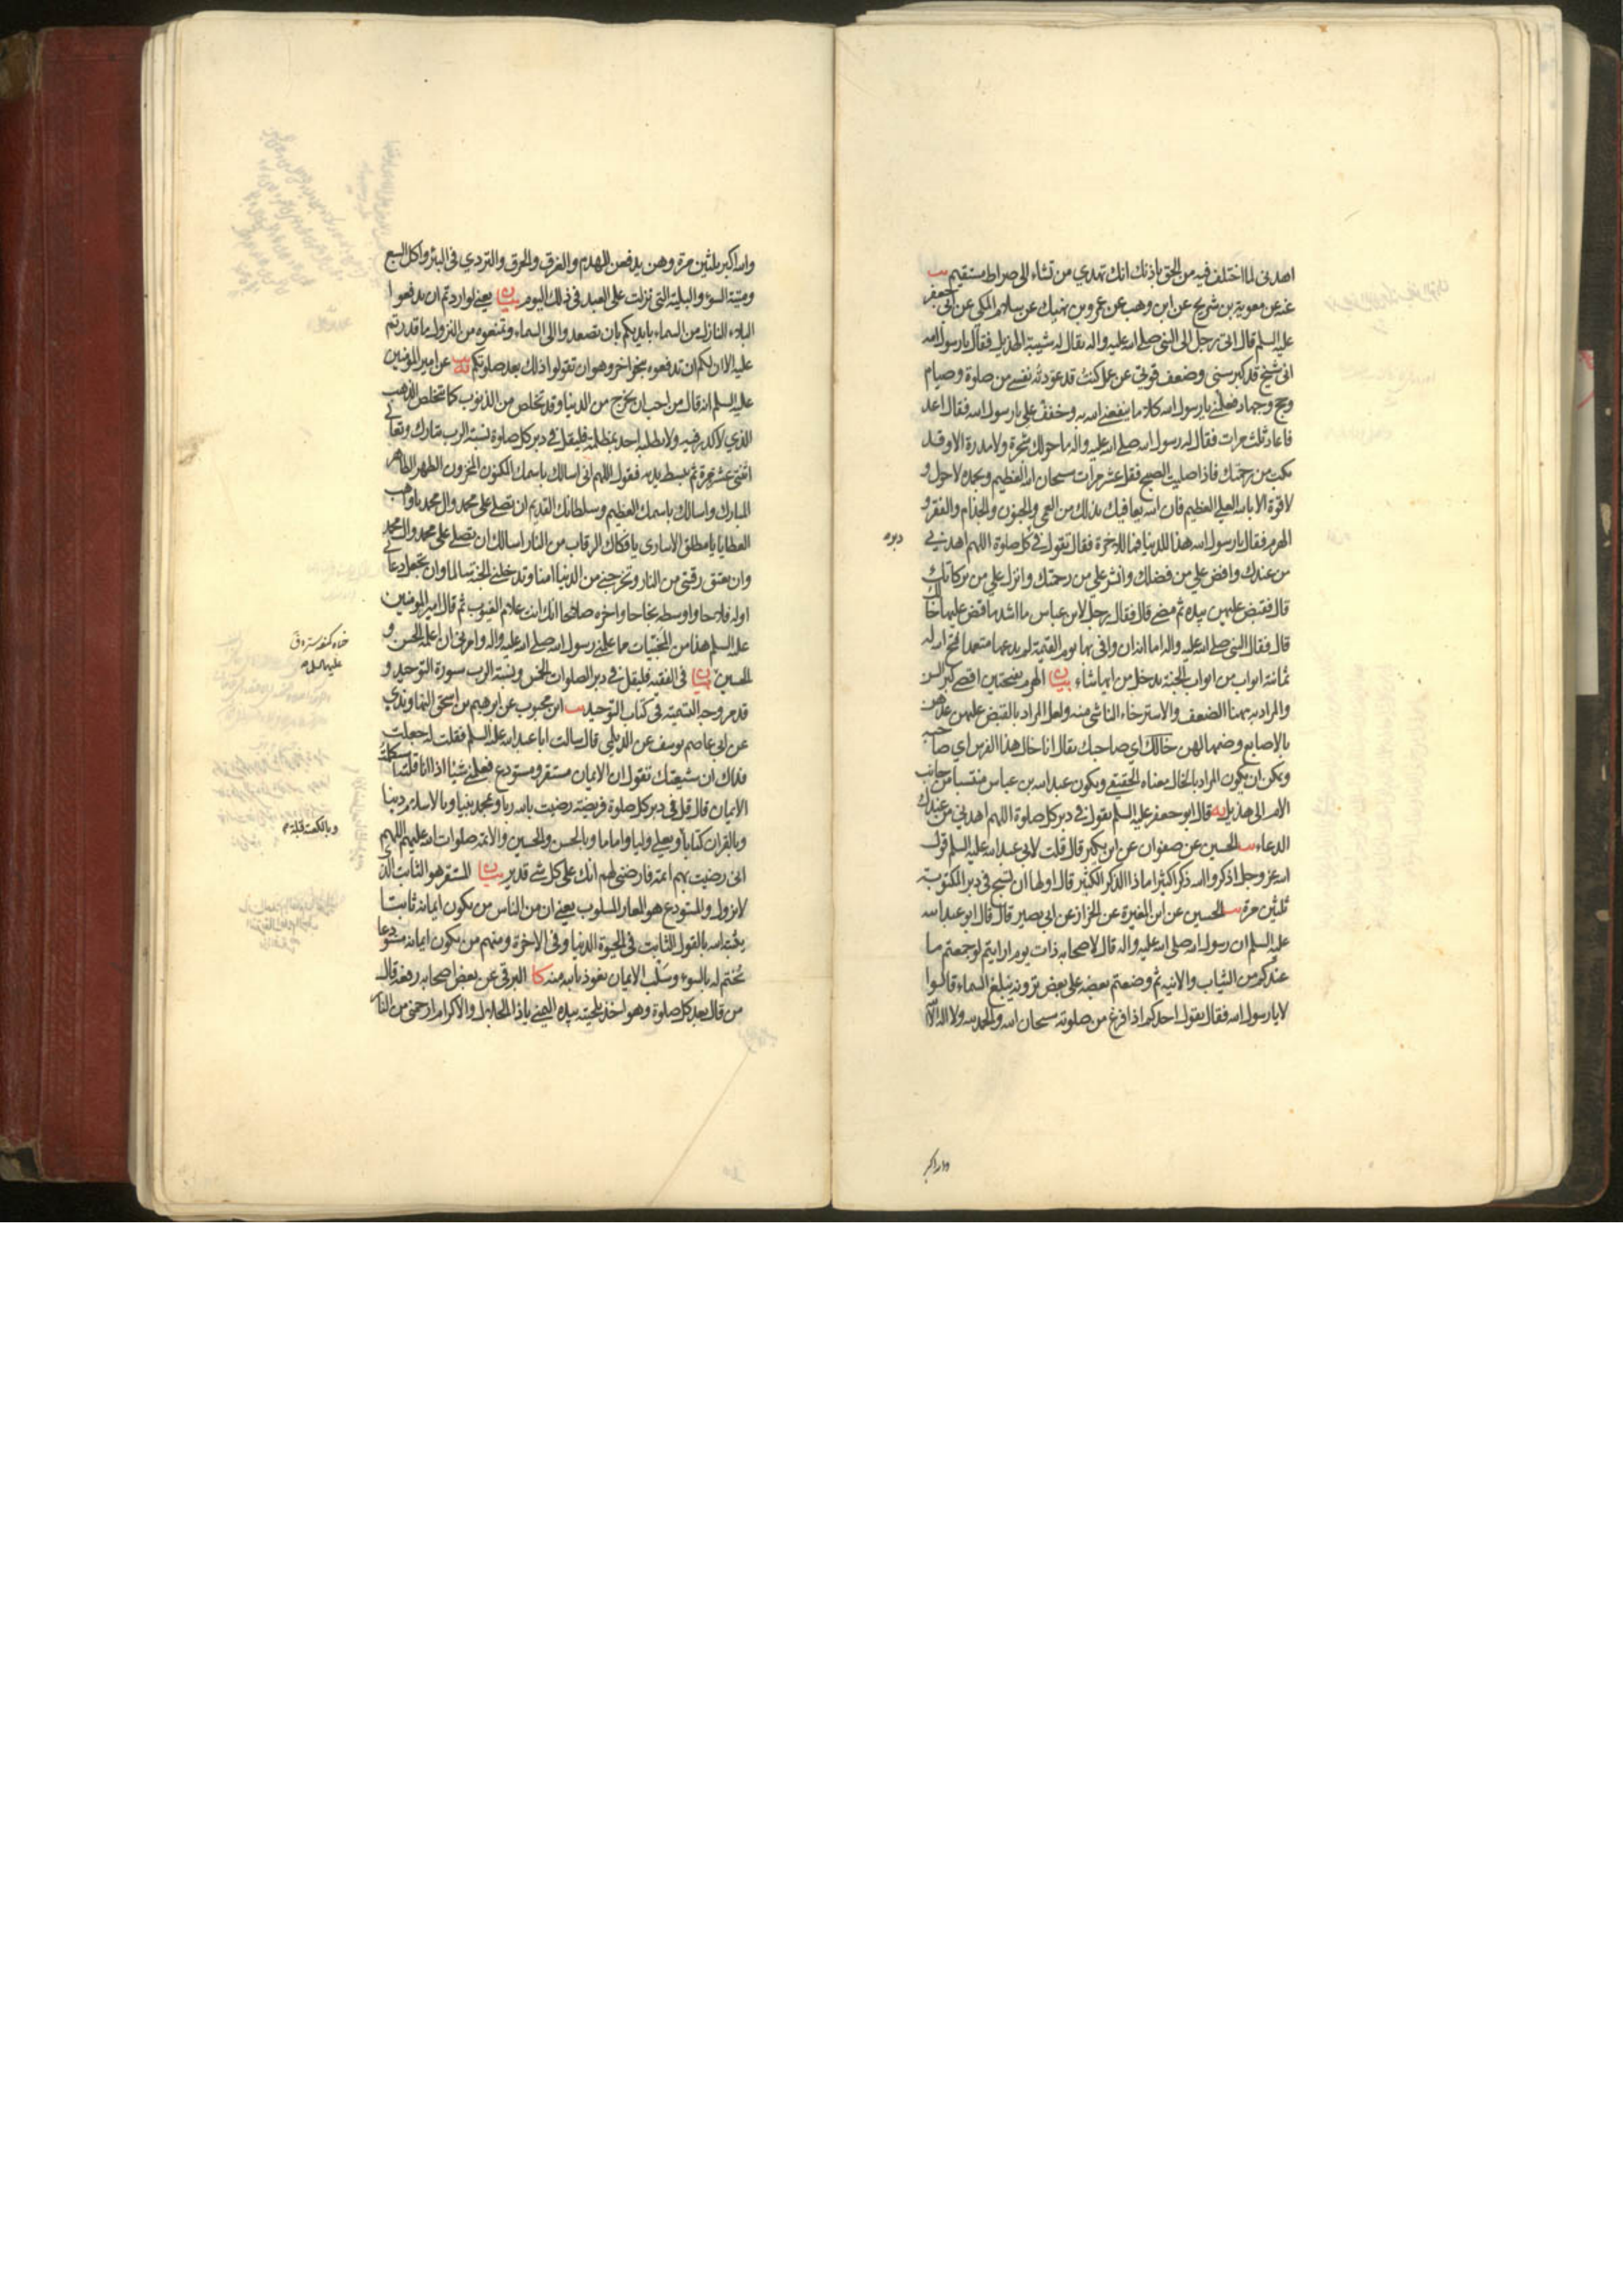 اهدنی لما اختلف فیه من الحق باذنك انك تهدي من تشاء الی صراط مستقیم یب
عنه عن معویة بن شریح عن ابن وهب عن عمرو بن نهیك عن سلام المکی عن ابی جعفر
علیه السلم قال اتی رجل الی النبی صلی الله علیه واله یقال له شیبة الهذیل فقال یا رسول الله
انی شیخ قد کبر سنی وضعف قوتی عن عمل کنت قد عودته نفسی من صلوة وصیام
وحج وجهاد فعلمنی یا رسول الله کلاما ینفعنی الله به وخفف علی یا رسول الله فقال اعد
فاعاد ثلث مرات فقال له رسول الله صلی الله علیه واله ما حولك شجرة ولا مدرة الا وقد
بکت من رحمتك فاذا صلیت الصبح فقل عشر مرات سبحان الله العظیم وبحمده لا حول و
لا قوة الا بالله العلی العظیم فان الله یعافیك بذلك من العمی والجنون والجذام والفقر و
الهرم فقال یا رسول الله هذا للدنیا فما للاخرة فقال تقول فی کل صلوة اللهم اهدنی
دبر
من عندك وافض علی من فضلك وانشر علی من رحمتك وانزل علی من برکاتك
قال فقبض علیهن بیده ثم مضی قال فقال رجل لابن عباس ما اشد ما قبض علیها خالك
قال فقال النبی صلی الله علیه واله اما انه ان وافی بها یوم القیمة لم یدعها متعمدا فتح الله له
ثمانیة ابواب من ابواب الجنة یدخل من ایها شاء بیان الهرم بفتحتین اقصی کبر السن
والمراد به هنا الضعف والاسترخاء الناشی منه ولعل المراد بالقبض علیهن عدهن
بالاصابع وضمها لهن خالك ای صاحبك یقال انا خال هذا الفرس ای صاحبه
ویمکن ان یکون المراد بالخال معناه الحقیقی ویکون عبد الله بن عباس منتسبا من جانب
الام الی هذیل یه قال ابو جعفر علیه السلم تقول فی دبر کل صلوة اللهم اهدنی من عندك
الدعاء یب الحسین عن صفوان عن ابن بکیر قال قلت لابی عبد الله علیه السلم قول
الله عز وجل اذکروا الله ذکرا کثیرا ماذا الذکر الکثیر قال اولها ان تسبح فی دبر المکتوبة
ثلثین مرة یب الحسین عن ابن المغیرة عن الخزاز عن ابی بصیر قال قال ابو عبد الله
علیه السلم ان رسول الله صلی الله علیه واله قال لاصحابه ذات یوم ارایتم لو جمعتم ما
عندکم من الثیاب والانیة ثم وضعتم بعضه علی بعض ترونه یبلغ السماء قالوا
لا یا رسول الله فقال یقول احدکم اذا فرغ من صلوته سبحان الله والحمد لله ولا اله الا الله
والله اکبر
والله اکبر ثلثین مرة وهن یدفعن الهدم والغرق والحرق والتردي فی البئر واکل السبع
ومیتة السوء والبلیة التی نزلت علی العبد فی ذلك الیوم بیان یعنی لو اردتم ان تدفعوا
البلاء النازل من السماء بایدیکم بان تصعدوا الی السماء وتمنعوه من النزول ما قدرتم
علیه الا ان لکم ان تدفعوه بنحو اخر وهو ان تقولوا ذلك بعد صلوتکم یه عن امیر المؤمنین
علیه السلم انه قال من احب ان یخرج من الدنیا وقد تخلص من الذنوب کما یتخلص الذهب
الذي لا کدر فیه ولا یطلبه احد بمظلمة فلیقل فی دبر کل صلوة نسبة الرب تبارك وتعالی
اثنتی عشر مرة ثم یبسط یدیه فیقول اللهم انی اسالك باسمك المکنون المخزون الطهر الطاهر
المبارك واسالك باسمك العظیم وسلطانك القدیم ان تصلی علی محمد وال محمد یا واهب
العطایا یا مطلق الاساری یا فکاك الرقاب من النار اسالك ان تصلی علی محمد وال محمد
وان تعتق رقبتی من النار وتخرجنی من الدنیا امنا وتدخلنی الجنة سالما وان تجعل دعائی
اوله فلاحا واوسطه نجاحا واخره صلاحا انك انت علام الغیوب ثم قال امیر المؤمنین
علیه السلم هذا من المخبیات مما علمنی رسول الله صلی الله علیه واله وامرنی ان اعلمه الحسن و
الحسین بیان فی الفقیه فلیقل فی دبر الصلوات الخمس ونسبة الرب سورة التوحید و
قد مر وجه التسمیة فی کتاب التوحید یب ابن محبوب عن ابرهیم بن اسحق النهاوندي
عن ابی عاصم یوسف عن الدیلمی قال سالت ابا عبد الله علیه السلم فقلت له جعلت
فداك ان شیعتك تقول ان الایمان مستقر ومستودع فعلمنی شیئا اذا انا قلته استکملت
الایمان قال قل فی دبر کل صلوة فریضة رضیت بالله ربا وبمحمد نبیا وبالاسلام دینا
وبالقران کتابا وبعلی ولیا واماما وبالحسن والحسین والائمة صلوات الله علیهم اللهم
وبالکعبة قبلة
انی رضیت بهم ائمة فارضنی لهم انك علی کل شئ قدیر بیان المستقر هو الثابت الذي
لا یزول والمستودع هو المعار المسلوب یعنی ان من الناس من یکون ایمانه ثابتا
یثبته الله بالقول الثابت فی الحیوة الدنیا وفی الاخرة ومنهم من یکون ایمانه مستودعا
یختم له بالسوء وسلب الایمان نعوذ بالله منه کا البرقی عن بعض اصحابه رفعه قال
من قال بعد کل صلوة وهو اخذ بلحیته بیده الیمنی یا ذا الجلال والاکرام ارحمنی من النار